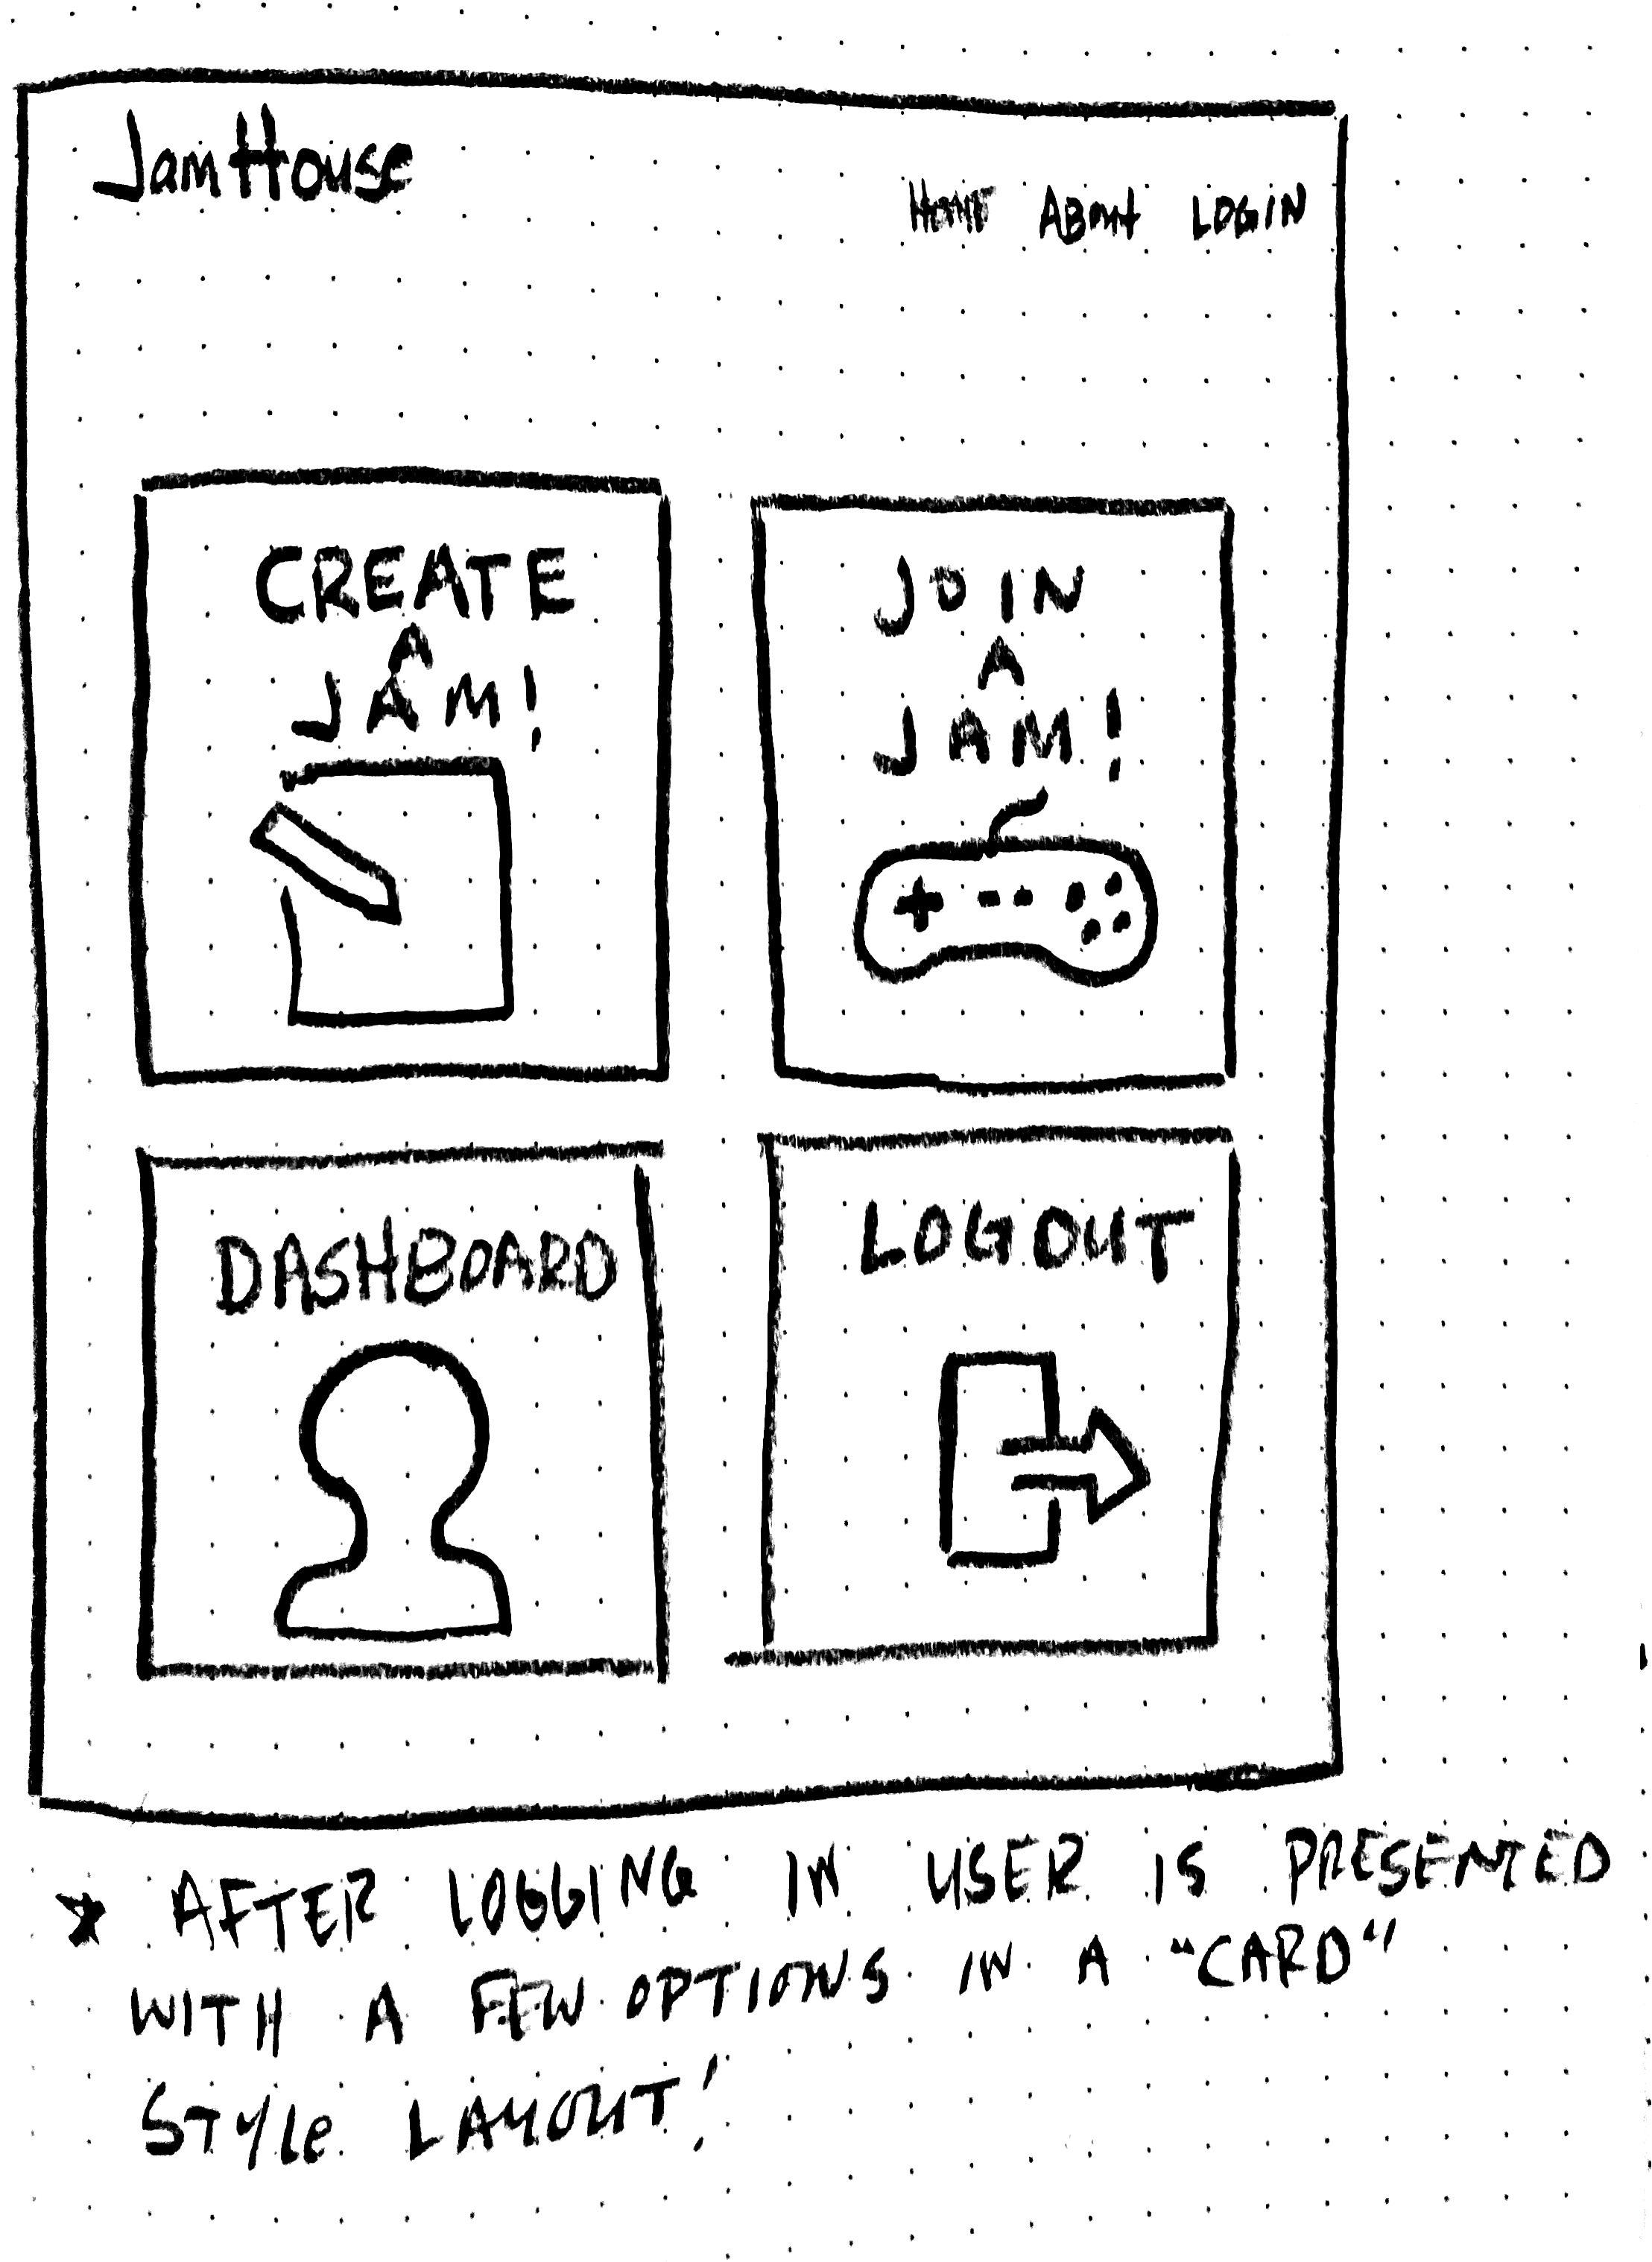 JamHouse
Home About LOGIN
CREATE
A
JAM!
JOIN
A
JAM!
DASHBOARD
LOGOUT
* AFTER LOGGING IN USER IS PRESENTED
WITH A FEW OPTIONS IN A "CARD"
STYLE LAYOUT!